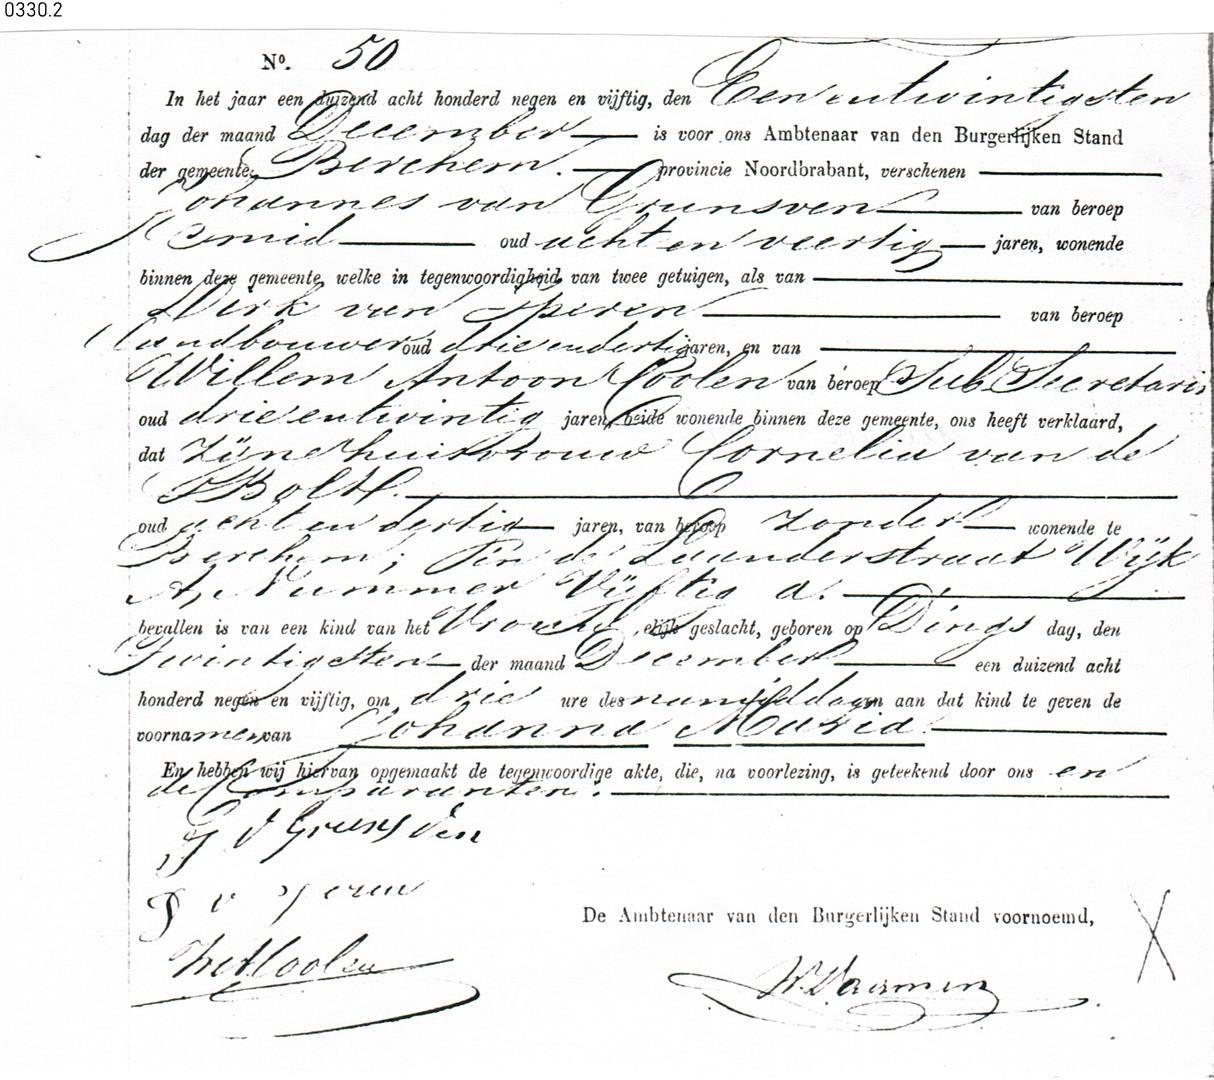 0330.2
No. 50
In het jaar een duizend acht honderd negen en vijftig, den Eenentwintigsten
dag der maand December is voor ons Ambtenaar van den Burgerlijken Stand
der gemeente Berchem. provincie Noordbrabant, verschenen
Johannes van Grunsven van beroep
Smid oud acht en veertig jaren, wonende
binnen deze gemeente, welke in tegenwoordigheid van twee getuigen, als van
Dirk van Speren van beroep
Landbouwer oud drie endertig jaren, en van
Willem Antoon Coolen van beroep Sub Secretaris
oud drieentwintig jaren, beide wonende binnen deze gemeente, ons heeft verklaard,
dat zijne huisvrouw Cornelia van de
Bolt.
oud acht en dertig jaren, van beroep zonder wonende te
Berchem; in de Laanderstraat Wijk
A, Nummer Vijftig a.
bevallen is van een kind van het Vrouw elijk geslacht, geboren op Dings dag, den
Twintigsten der maand December een duizend acht
honderd negen en vijftig, om drie ure des namiddags aan dat kind te geven de
voornamen van Johanna Maria
En hebben wij hiervan opgemaakt de tegenwoordige akte, die, na voorlezing, is geteekend door ons en
de Comparanten.
J V Grunsven
D v Speren
WA Coolen
De Ambtenaar van den Burgerlijken Stand voornoemd,